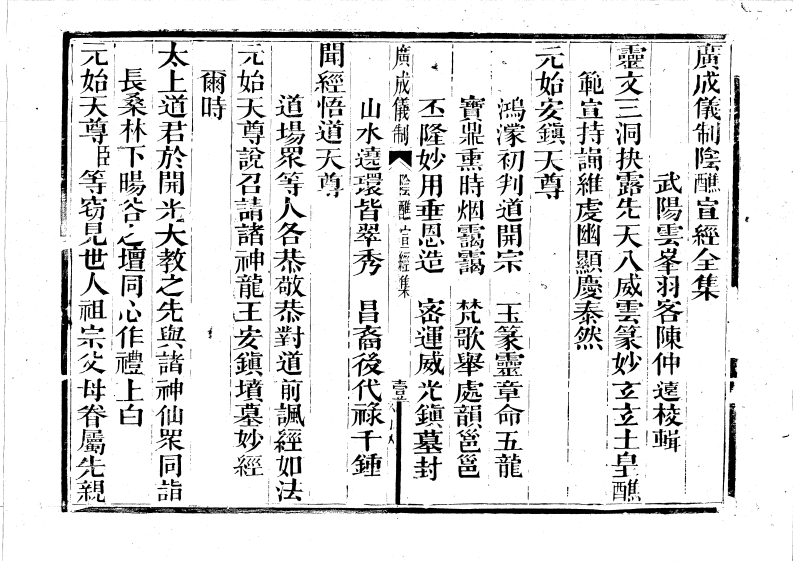 廣成儀制陰醮宣經全集
武陽雲峯羽客陳仲遠校輯
靈文三洞抉露先天八威雲篆妙玄玄土皇醮
範宣持誦維虔幽顯慶泰然
元始安鎮天尊
鴻濛初判道開宗 玉篆靈章命五龍
寶鼎熏時烟靄靄 梵歌舉處韻邕邕
丕隆妙用垂恩造 密運威光鎮墓封
廣成儀制 陰醮宣經集 壹
山水遶環皆翠秀 昌裔後代祿千鍾
聞經悟道天尊
道場眾等人各恭敬恭對道前諷經如法
元始天尊說召請諸神龍王安鎮墳墓妙經
爾時
太上道君於開光大教之先與諸神仙眾同詣
長桑林下暘谷之壇同心作禮上白
元始天尊臣等窃見世人祖宗父母眷屬先親